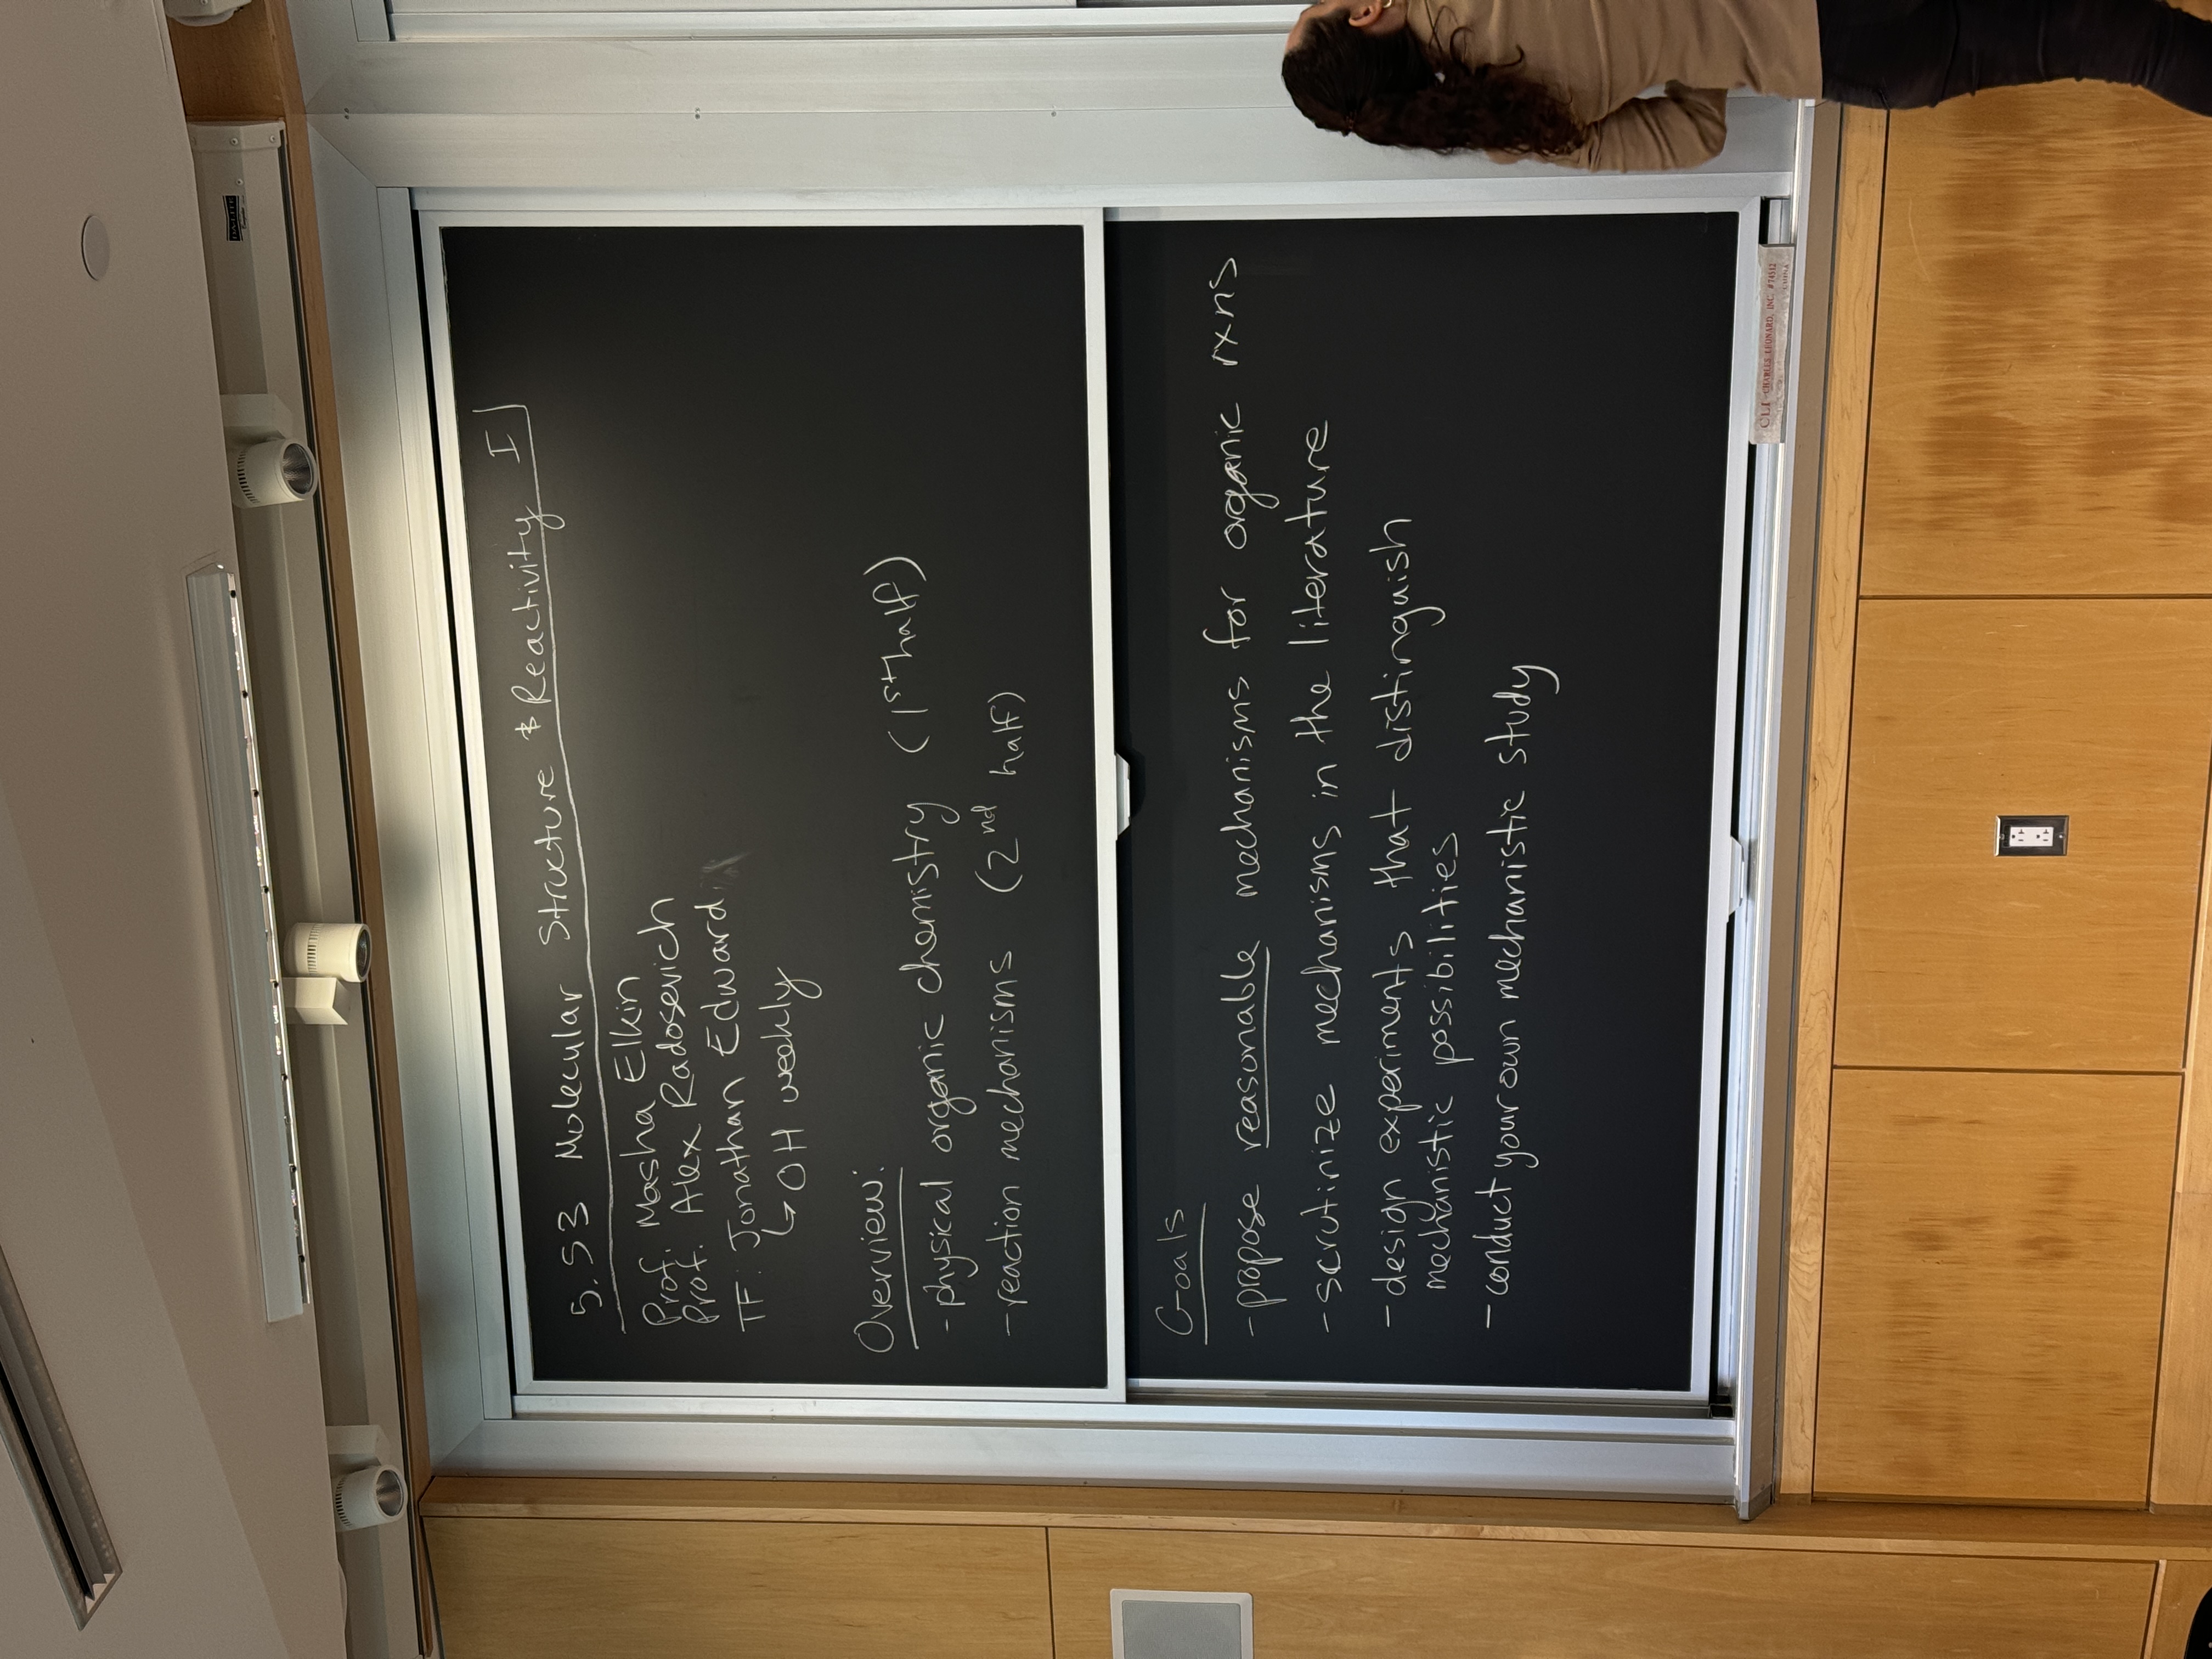 DA-LITE
5.53 Molecular Structure & Reactivity I
Prof. Masha Elkin
Prof. Alex Radosevich
TF: Jonathan Edward
↳ OH weekly
Overview:
- physical organic chemistry (1st half)
- reaction mechanisms (2nd half)
Goals
- propose reasonable mechanisms for organic rxns
- scrutinize mechanisms in the literature
- design experiments that distinguish
mechanistic possibilities
- conduct your own mechanistic study
CLI - CHARLES LEONARD, INC. #74512
CHINA